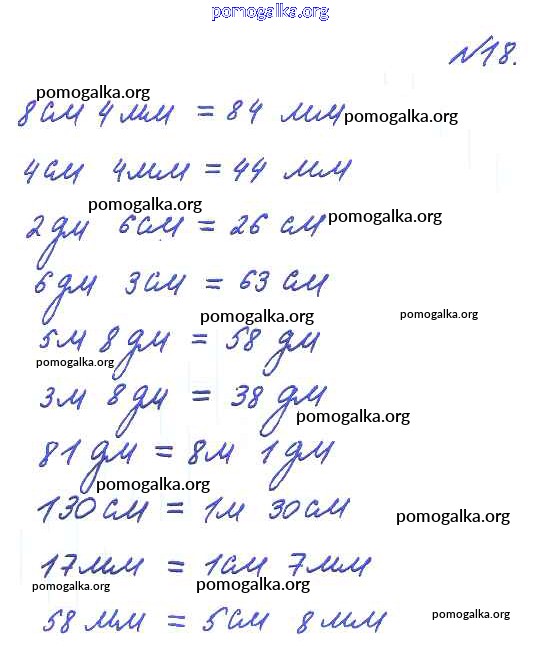 pomogalka.org
№18.
pomogalka.org
8 см 4 мм = 84 мм pomogalka.org
4 см 4 мм = 44 мм
pomogalka.org
2 дм 6 см = 26 см pomogalka.org
6 дм 3 см = 63 см
pomogalka.org pomogalka.org
5 м 8 дм = 58 дм
pomogalka.org
3 м 8 дм = 38 дм
pomogalka.org
81 дм = 8 м 1 дм
pomogalka.org
130 см = 1 м 30 см pomogalka.org
17 мм = 1 см 7 мм
pomogalka.org pomogalka.org
58 мм = 5 см 8 мм pomogalka.org